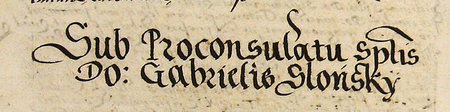 Sub Proconsulatu Sptis
Do: Gabrielis Slońsky